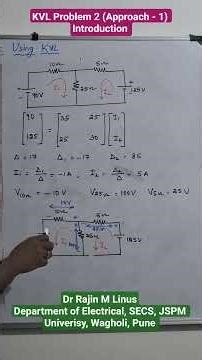 KVL Problem 2 (Approach - 1)
Introduction
Using KVL
10Ω 5Ω
90V I₁ 25Ω I₂ 125V
[90 125] = [35 25 25 30] [I₁ I₂]
Δ = 17 Δ₁ = -17 Δ₂ = 85
I₁ = Δ₁/Δ = -1A I₂ = Δ₂/Δ = 5A
V10Ω = -10V V25Ω = 100V V5Ω = 25V
10V
5Ω
25Ω
I₁ I₂ 125V
Dr Rajin M Linus
Department of Electrical, SECS, JSPM
Univerisy, Wagholi, Pune